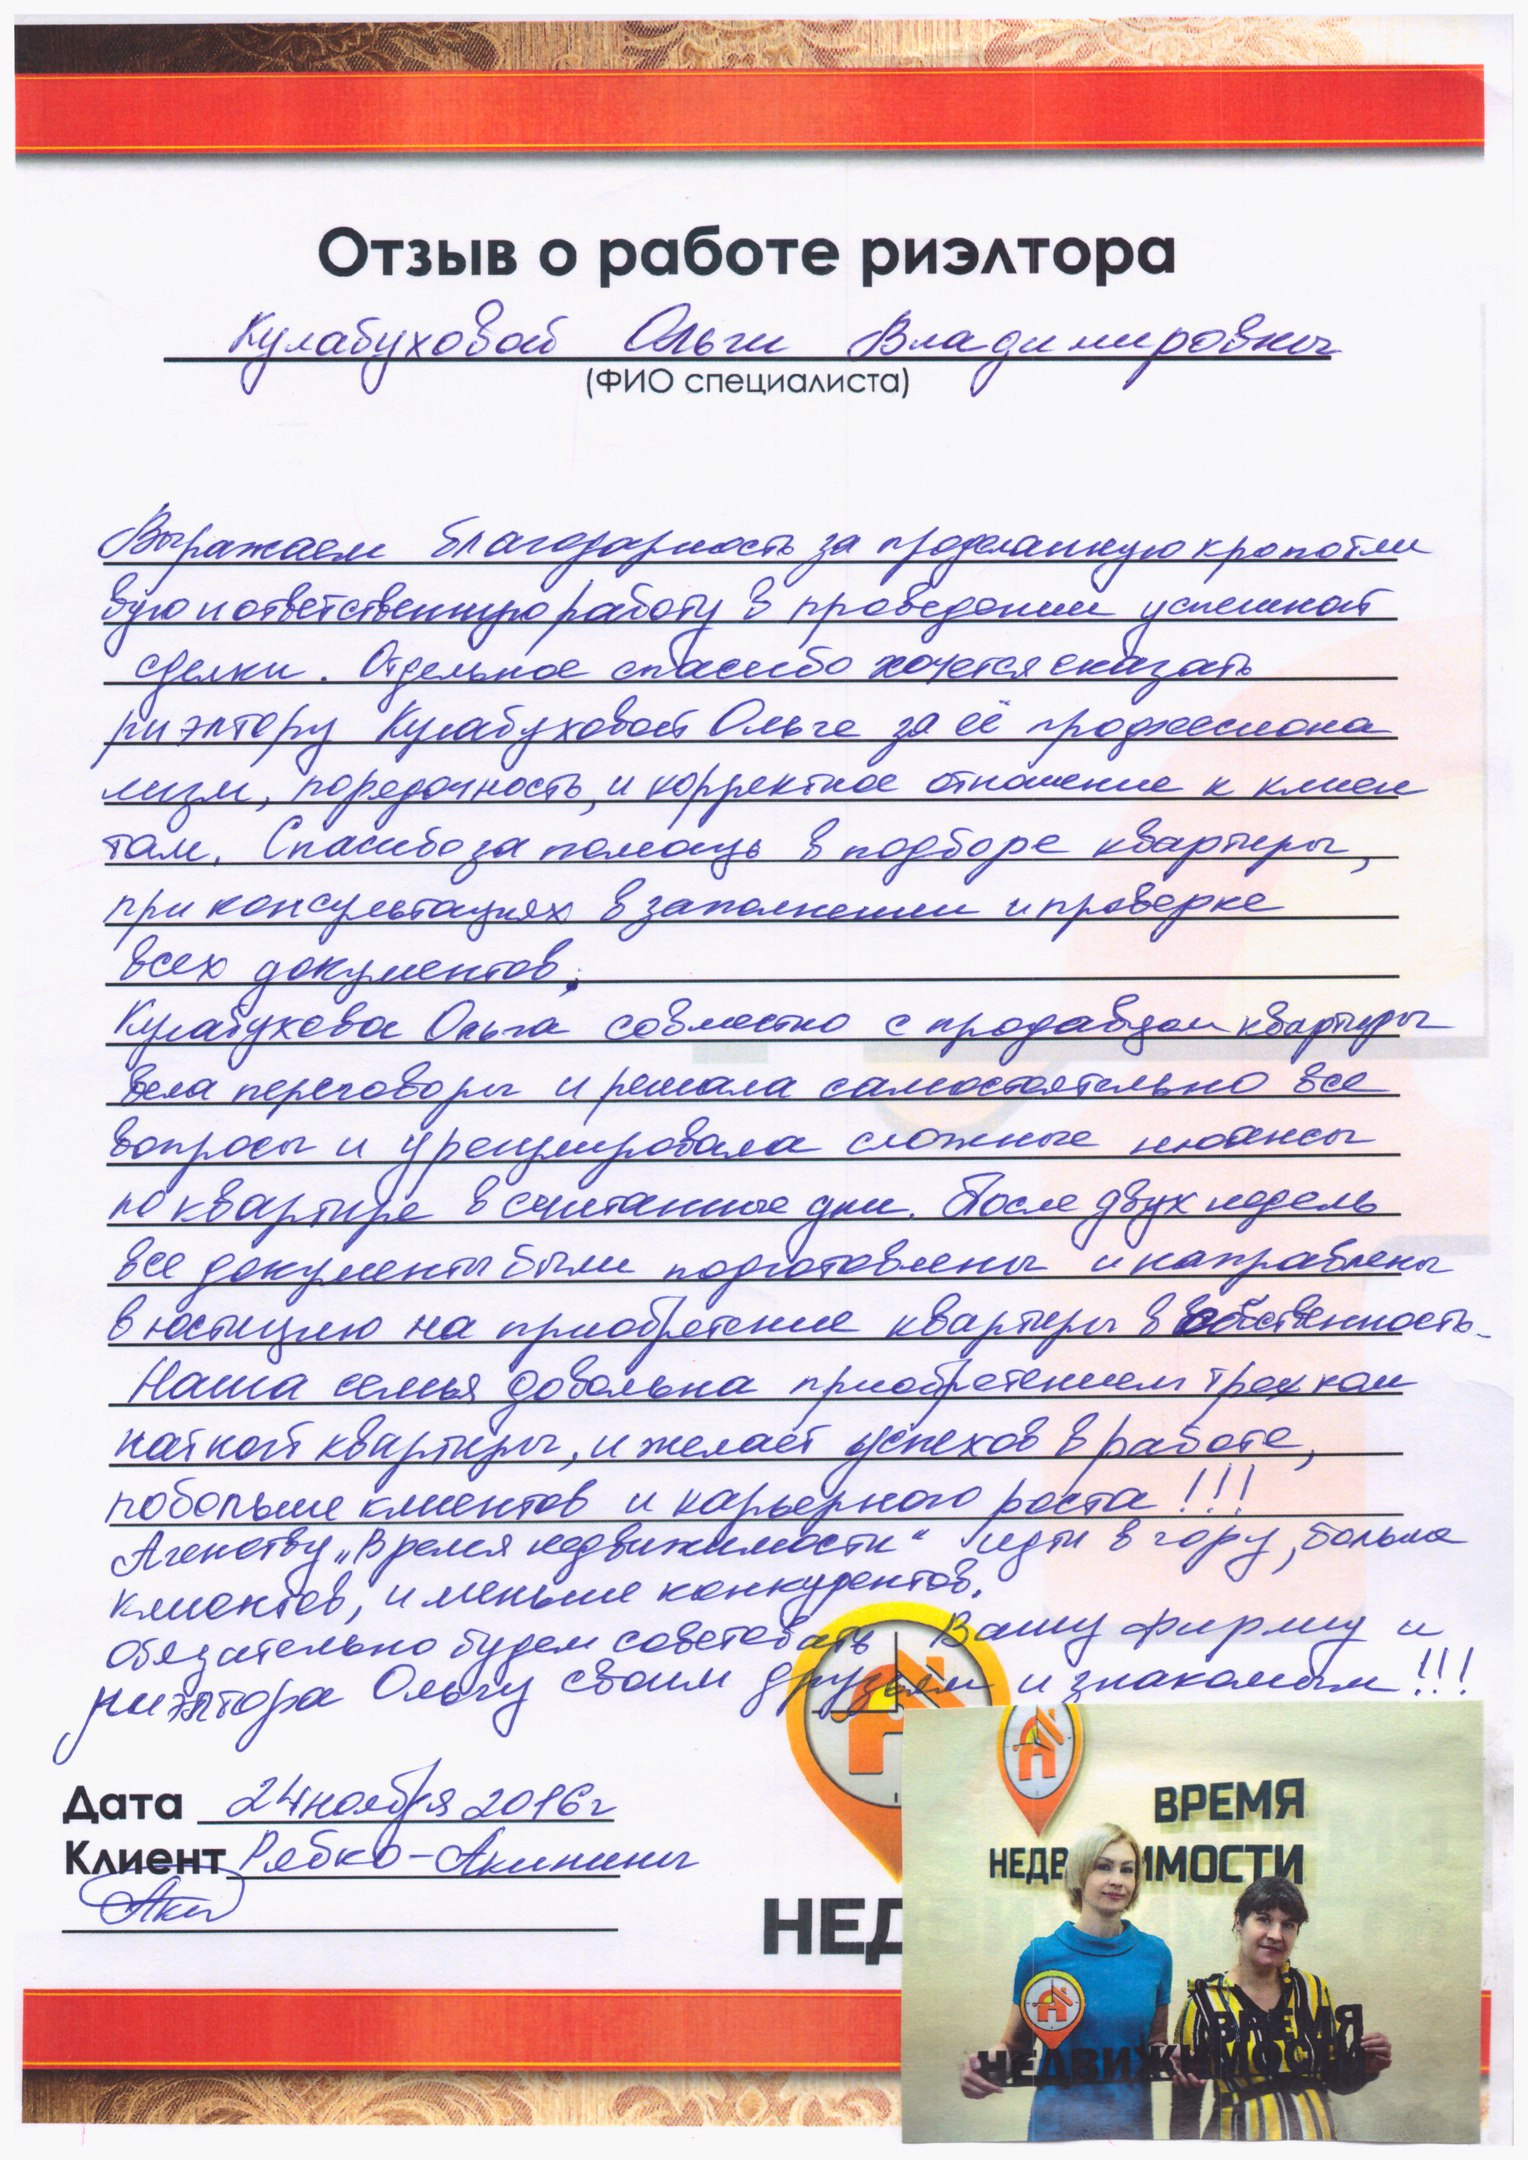 Отзыв о работе риэлтора
Кулабуховой Ольги Владимировны
(ФИО специалиста)
Выражаем благодарность за проделанную кропотли
вую и ответственную работу в проведении успешной
сделки. Отдельное спасибо хочется сказать
риэлтору Кулабуховой Ольге за её профессиона
лизм, порядочность, и корректное отношение к клиен
там. Спасибо за помощь в подборе квартиры,
при консультациях в заполнении и проверке
всех документов.
Кулабухова Ольга совместно с продавцом квартиры
вела переговоры и решала самостоятельно все
вопросы и урегулировала сложные нюансы
по квартире в считанные дни. После двух недель
все документы были подготовлены и направлены
в юстицию на приобретение квартиры в собственность.
Наша семья довольна приобретением трех ком
натной квартиры, и желает успехов в работе,
побольше клиентов и карьерного роста!!!
Агенству „Время недвижимости“ идти в гору, больше
клиентов, и меньше конкурентов.
Обязательно будем советовать Вашу фирму и
риэлтора Ольгу своим друзьям и знакомым!!!
Дата 24 ноября 2016г
Клиент Рябко-Акинины
НЕД
ВРЕМЯ
НЕДВ ИМОСТИ
ВРЕМЯ
НЕДВИЖИМОСТИ